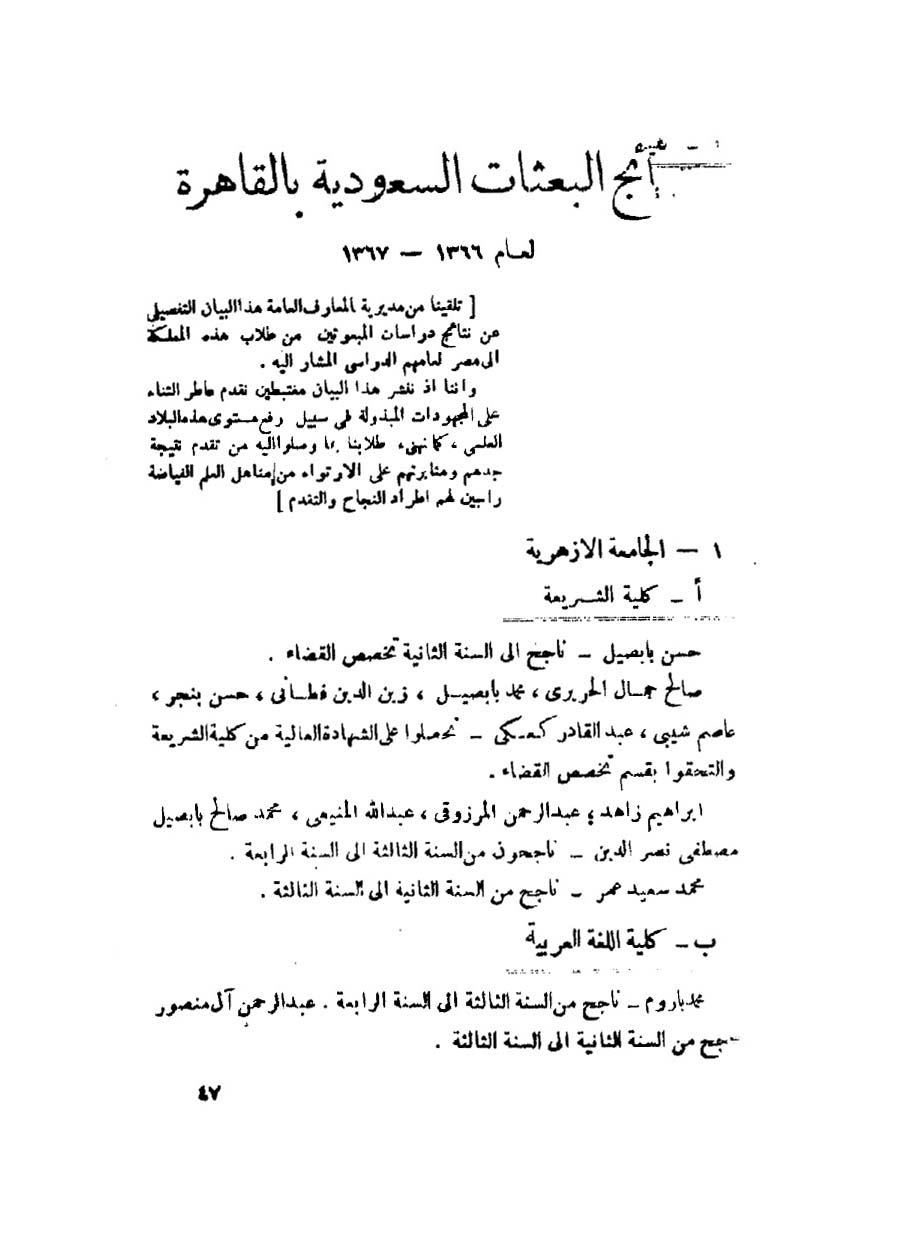 نتائج البعثات السعودية بالقاهرة
لعام ١٣٦٦ — ١٣٦٧
[ تلقينا من مديرية المعارف العامة هذا البيان التفصيلي
عن نتائج دراسات المبعوثين من طلاب هذه المملكة
الى مصر لعامهم الدراسى المشار اليه .
واننا اذ ننشر هذا البيان مغتبطين نقدم عاطر الثناء
على المجهودات المبذولة فى سبيل رفع مستوى هذه البلاد
العلمى ، كما نهنىء طلابنا بما وصلوا اليه من تقدم نتيجة
جدهم ومثابرتهم على الارتواء من مناهل العلم الفياضة
راجين لهم اطراد النجاح والتقدم ]
١ — الجامعة الازهرية
أ ــ كلية الشريعة
حسن بابصيل ــ ناجح الى السنة الثانية تخصص القضاء .
صالح جمال الحريرى ، محمد بابصيل ، زين الدين فطانى ، حسن بنجر ،
عاصم شيبى ، عبد القادر كعكى ــ تحصلوا على الشهادة العالية من كلية الشريعة
والتحقوا بقسم تخصص القضاء .
ابراهيم زاهد ، عبدالرحمن المرزوقى ، عبدالله المنيعى ، محمد صالح بابصيل
مصطفى نصر الدين ــ ناجحون من السنة الثالثة الى السنة الرابعة .
محمد سعيد عمر ــ ناجح من السنة الثانية الى السنة الثالثة .
ب ــ كلية اللغة العربية
محمد باروم ــ ناجح من السنة الثالثة الى السنة الرابعة . عبدالرحمن آل منصور
ناجح من السنة الثانية الى السنة الثالثة .
٤٧